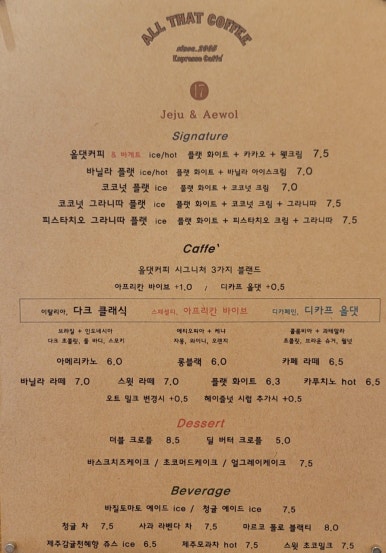 ALL THAT COFFEE
since.2015
Espresso Caffé
17
Jeju & Aewol
Signature
올댓커피 & 바게트 ice/hot 플랫 화이트 + 카카오 + 휑크림 7,5
바닐라 플랫 ice/hot 플랫 화이트 + 바닐라 아이스크림 7,0
코코넛 플랫 ice 플랫 화이트 + 코코넛 크림 7,0
코코넛 그라니따 플랫 ice 플랫 화이트 + 코코넛 크림 + 그라니따 7,5
피스타치오 그라니따 플랫 ice 플랫 화이트 + 피스타치오 크림 + 그라니따 7,5
Caffe'
올댓커피 시그니처 3가지 블렌드
아프리칸 바이브 +1,0 / 디카프 올댓 +0,5
이탈리아, 다크 클래식 스페셜티, 아프리칸 바이브 디카페인, 디카프 올댓
브라질 + 인도네시아 에티오피아 + 케냐 콜롬비아 + 과테말라
다크 초콜릿, 풀 바디, 스모키 자몽, 와이니, 오렌지 초콜릿, 브라운 슈거, 월넛
아메리카노 6,0 롱블랙 6,0 카페 라떼 6,5
바닐라 라떼 7,0 스윗 라떼 7,0 플랫 화이트 6,3 카푸치노 hot 6,5
오트 밀크 변경시 +0,5 헤이즐넛 시럽 추가시 +0,5
Dessert
더블 크로플 8,5 딜 버터 크로플 5,0
바스크치즈케이크 / 초코머드케이크 / 얼그레이케이크 7,5
Beverage
바질토마토 에이드 ice / 청귤 에이드 ice 7,5
청귤 차 7,5 사과 라벤다 차 7,5 마르코 폴로 블랙티 8,0
제주감귤천혜향 쥬스 ice 6,5 제주모과차 hot 7,5 스윗 초코밀크 7,5